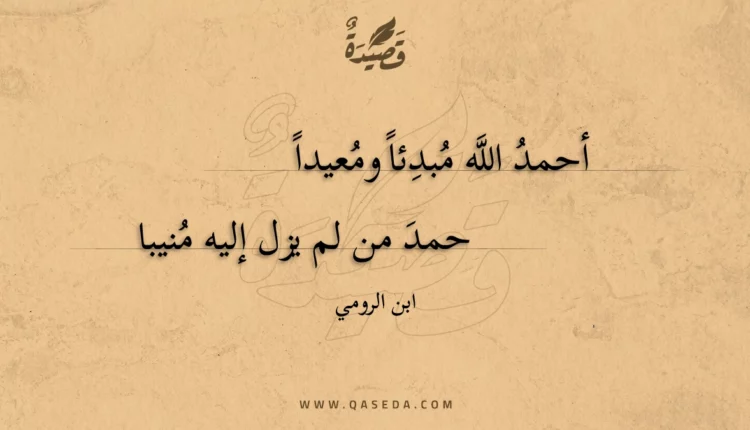 قَصِيدَةٌ
أحمدُ اللَّه مُبدِئاً ومُعيداً
حمدَ من لم يزل إليه مُنيبا
ابن الرومي
WWW.QASEDA.COM